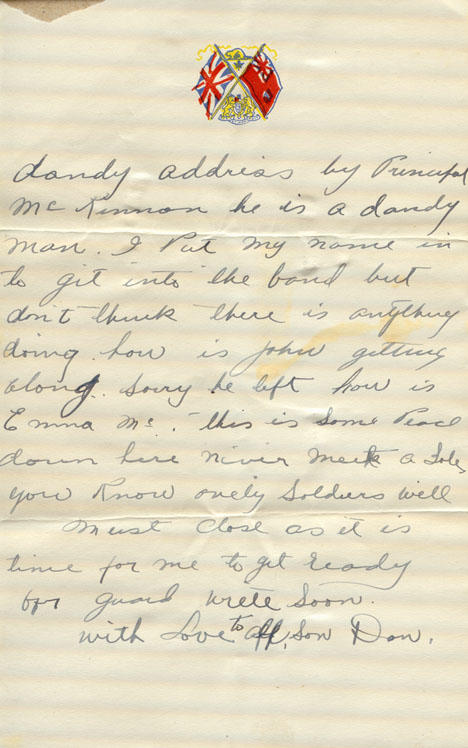 dandy address by Principal
McKinnon he is a dandy
man. I Put my name in
to git into the band but
don't think there is anything
doing. how is John getting
along. Sorry he left how is
Emma Mc. this is some Place
down here niver meet a Sole
you Know onely Soldiers well
Must Close as it is
time for me to get ready
for guard wrete Soon.
with Love to all, Son Dan.